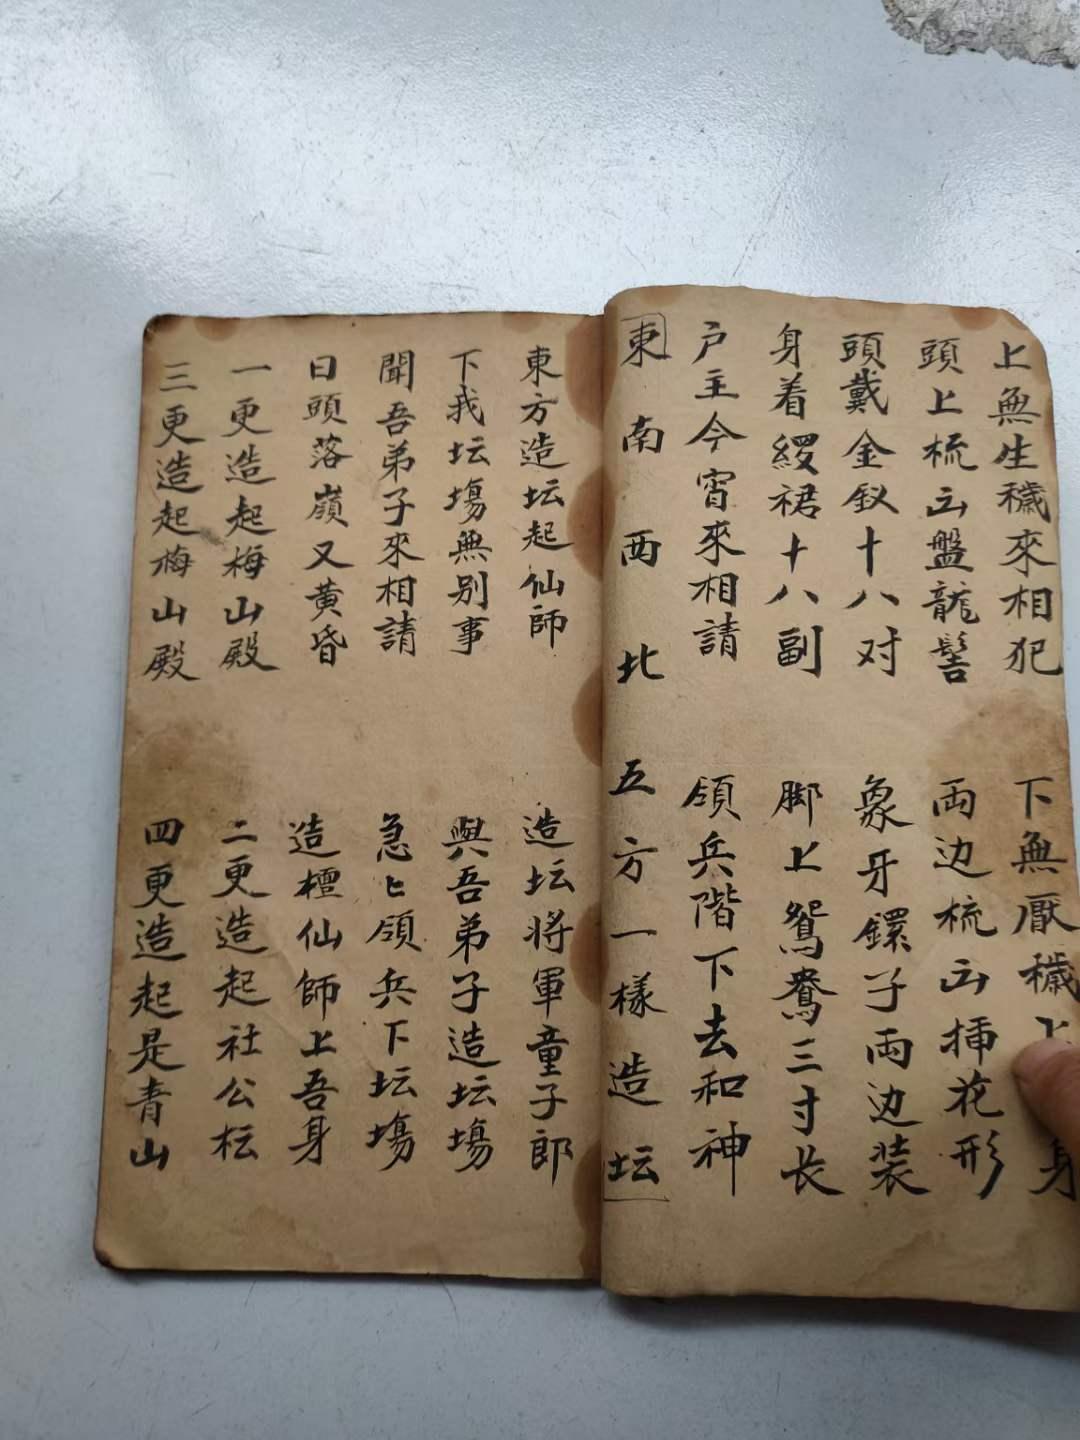 上無生穢來相犯 下無厭穢上身
頭上梳出盤龍髻 両边梳出挿花形
頭戴金釵十八对 象牙鏍子両边装
身着綬裙十八副 脚上鴛鴦三寸长
户主今宵來相請 領兵階下去和神
東南西北五方一樣造坛
東方造坛起仙師 造坛将軍童子郎
下我坛塲無别事 與吾弟子造坛塲
聞吾弟子來相請 急〻領兵下坛塲
日頭落嶺又黄昏 造檀仙師上吾身
一更造起梅山殿 二更造起社公枟
三更造起梅山殿 四更造起是青山